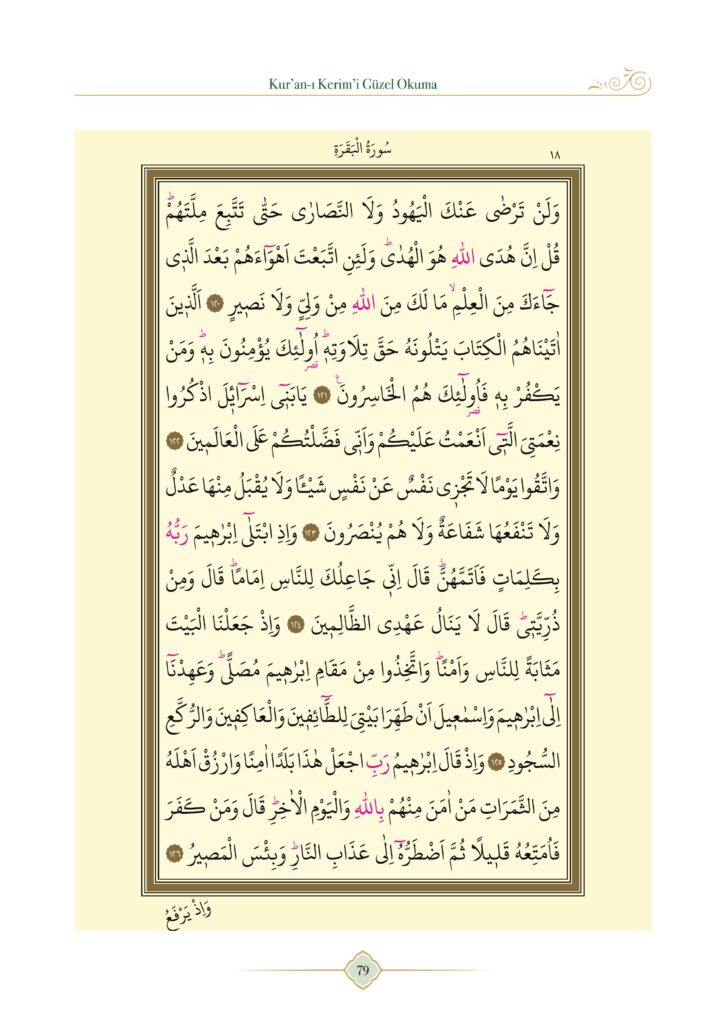 Kur'an-ı Kerim'i Güzel Okuma
سُورَةُ الْبَقَرَةِ
١٨
وَلَنْ تَرْضٰى عَنْكَ الْيَهُودُ وَلَا النَّصَارٰى حَتّٰى تَتَّبِعَ مِلَّتَهُمْۜ
قُلْ اِنَّ هُدَى اللّٰهِ هُوَ الْهُدٰىۜ وَلَئِنِ اتَّبَعْتَ اَهْوَٓاءَهُمْ بَعْدَ الَّذ۪ي
جَٓاءَكَ مِنَ الْعِلْمِۙ مَا لَكَ مِنَ اللّٰهِ مِنْ وَلِيٍّ وَلَا نَص۪يرٍ ﴿١٢٠﴾ اَلَّذ۪ينَ
اٰتَيْنَاهُمُ الْكِتَابَ يَتْلُونَهُ حَقَّ تِلَاوَتِه۪ۜ اُو۬لٰٓئِكَ يُؤْمِنُونَ بِه۪ۜ وَمَنْ
قصر
يَكْفُرْ بِه۪ فَاُو۬لٰٓئِكَ هُمُ الْخَاسِرُونَ۟ ﴿١٢١﴾ يَابَن۪ٓي اِسْرَٓائ۪لَ اذْكُرُوا
قصر
نِعْمَتِيَ الَّت۪ٓي اَنْعَمْتُ عَلَيْكُمْ وَاَنّ۪ي فَضَّلْتُكُمْ عَلَى الْعَالَم۪ينَ ﴿١٢٢﴾
وَاتَّقُوا يَوْمًا لَا تَجْز۪ي نَفْسٌ عَنْ نَفْسٍ شَيْـًٔا وَلَا يُقْبَلُ مِنْهَا عَدْلٌ
وَلَا تَنْفَعُهَا شَفَاعَةٌ وَلَا هُمْ يُنْصَرُونَ ﴿١٢٣﴾ وَاِذِ ابْتَلٰٓى اِبْرٰه۪يمَ رَبُّهُ
بِكَلِمَاتٍ فَاَتَمَّهُنَّۜ قَالَ اِنّ۪ي جَاعِلُكَ لِلنَّاسِ اِمَامًاۜ قَالَ وَمِنْ
ذُرِّيَّت۪يۜ قَالَ لَا يَنَالُ عَهْدِي الظَّالِم۪ينَ ﴿١٢٤﴾ وَاِذْ جَعَلْنَا الْبَيْتَ
مَثَابَةً لِلنَّاسِ وَاَمْنًاۜ وَاتَّخِذُوا مِنْ مَقَامِ اِبْرٰه۪يمَ مُصَلًّىۜ وَعَهِدْنَٓا
اِلٰٓى اِبْرٰه۪يمَ وَاِسْمٰع۪يلَ اَنْ طَهِّرَا بَيْتِيَ لِلطَّٓائِف۪ينَ وَالْعَاكِف۪ينَ وَالرُّكَّعِ
السُّجُودِ ﴿١٢٥﴾ وَاِذْ قَالَ اِبْرٰه۪يمُ رَبِّ اجْعَلْ هٰذَا بَلَدًا اٰمِنًا وَارْزُقْ اَهْلَهُ
مِنَ الثَّمَرَاتِ مَنْ اٰمَنَ مِنْهُمْ بِاللّٰهِ وَالْيَوْمِ الْاٰخِرِۜ قَالَ وَمَنْ كَفَرَ
فَاُمَتِّعُهُ قَل۪يلًا ثُمَّ اَضْطَرُّهُٓ اِلٰى عَذَابِ النَّارِۜ وَبِئْسَ الْمَص۪يرُ ﴿١٢٦﴾
وَاِذْ يَرْفَعُ
79